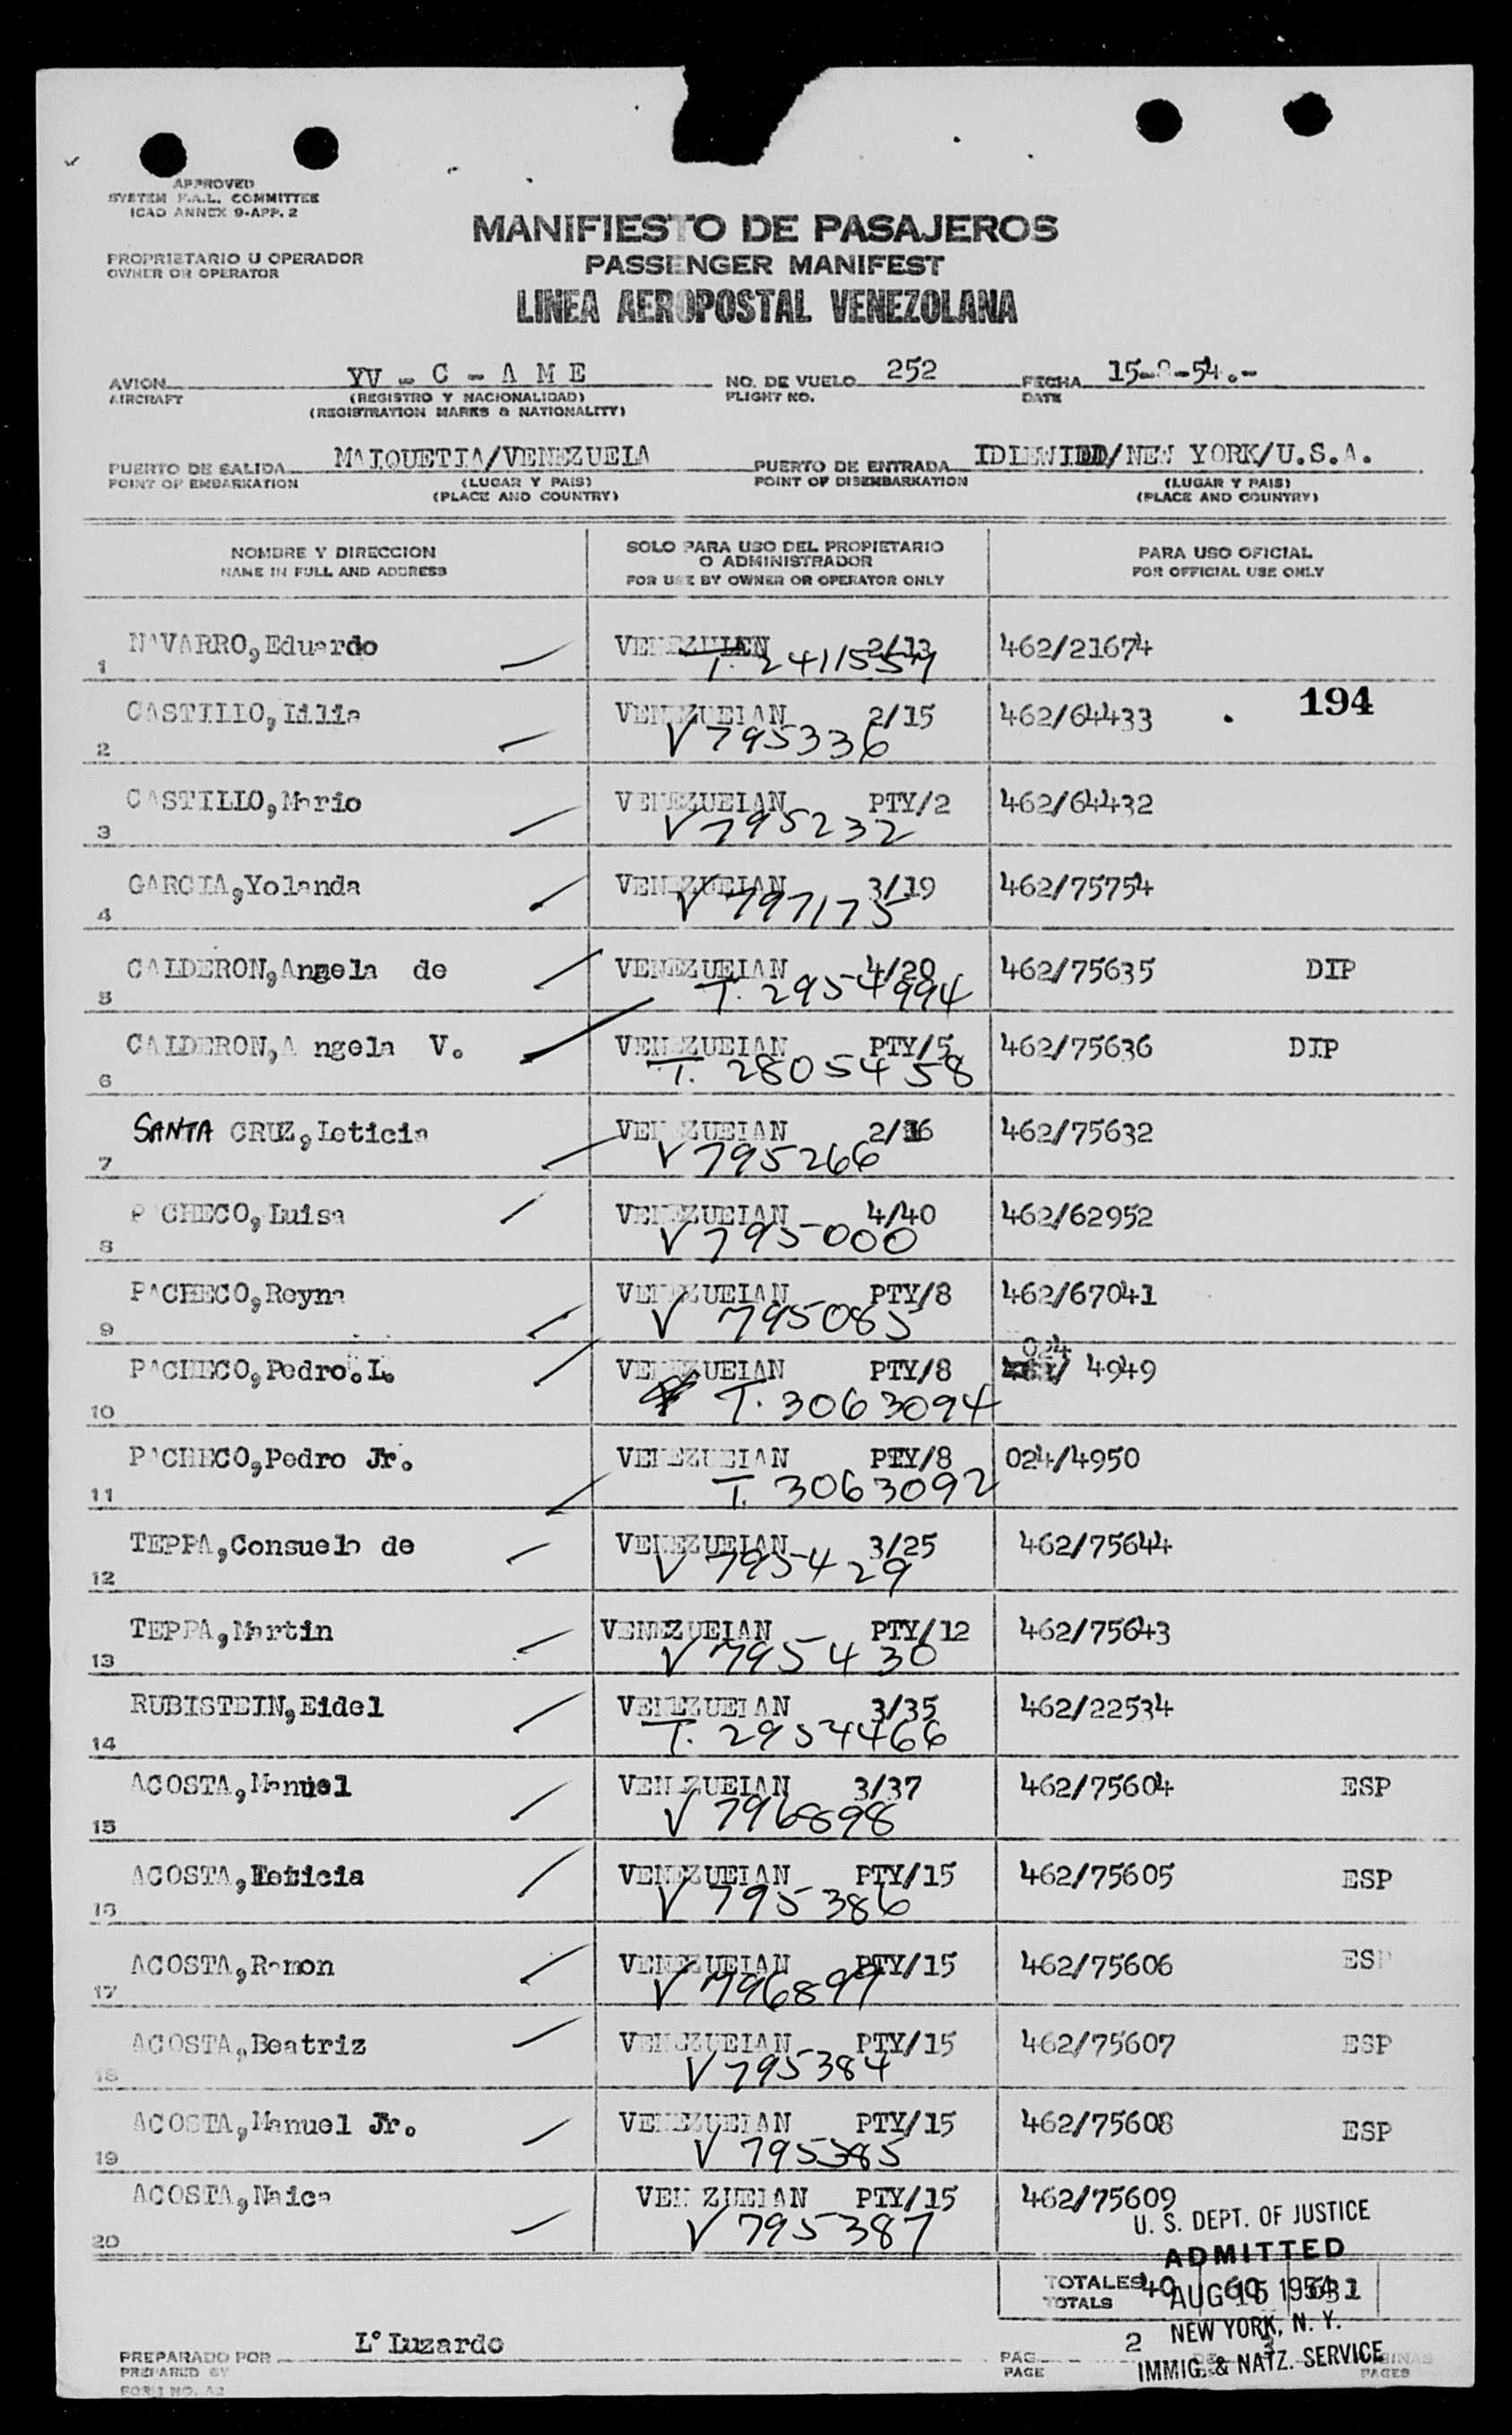 APPROVED
SYSTEM F.A.L. COMMITTEE
ICAO ANNEX 9-APP. 2
PROPRIETARIO U OPERADOR
OWNER OR OPERATOR
MANIFIESTO DE PASAJEROS
PASSENGER MANIFEST
LINEA AEROPOSTAL VENEZOLANA
AVION YV - C - A M E NO. DE VUELO 252 FECHA 15-8-54.-
AIRCRAFT (REGISTRO Y NACIONALIDAD) FLIGHT NO. DATE
(REGISTRATION MARKS & NATIONALITY)
PUERTO DE SALIDA MAIQUETIA/VENEZUELA PUERTO DE ENTRADA IDLEWILD/NEW YORK/U.S.A.
POINT OF EMBARKATION (LUGAR Y PAIS) POINT OF DISEMBARKATION (LUGAR Y PAIS)
(PLACE AND COUNTRY) (PLACE AND COUNTRY)
NOMBRE Y DIRECCION SOLO PARA USO DEL PROPIETARIO O ADMINISTRADOR PARA USO OFICIAL
NAME IN FULL AND ADDRESS FOR USE BY OWNER OR OPERATOR ONLY FOR OFFICIAL USE ONLY
NAVARRO, Eduardo VENEZUELAN 2/13 462/21674
1 T. 2411557
194
CASTILLO, Lilia VENEZUELAN 2/15 462/64433
2 V 795336
CASTILLO, Mario VENEZUELAN PTY/2 462/64432
3 V 795232
GARCIA, Yolanda VENEZUELAN 3/19 462/75754
4 V 797175
CALDERON, Angela de VENEZUELAN 4/20 462/75635 DIP
5 T. 2954994
CALDERON, A ngela V. VENEZUELAN PTY/5 462/75636 DIP
6 T. 2805458
SANTA CRUZ, Leticia VENEZUELAN 2/16 462/75632
7 V 795266
PACHECO, Luisa VENEZUELAN 4/40 462/62952
8 V 795000
PACHECO, Reyna VENEZUELAN PTY/8 462/67041
9 V 795085
024
PACHECO, Pedro.L. VENEZUELAN PTY/8 / 4949
10 T. 3063094
PACHECO, Pedro Jr. VENEZUELAN PTY/8 024/4950
11 T. 3063092
TEPPA, Consuelo de VENEZUELAN 3/25 462/75644
12 V 795429
TEPPA, Martin VENEZUELAN PTY/12 462/75643
13 V 795430
RUBISTEIN, Eidel VENEZUELAN 3/35 462/22534
14 T. 2954466
ACOSTA, Manuel VENEZUELAN 3/37 462/75604 ESP
15 V 796898
ACOSTA, Leticia VENEZUELAN PTY/15 462/75605 ESP
16 V 795386
ACOSTA, Ramon VENEZUELAN PTY/15 462/75606 ESP
17 V 796899
ACOSTA, Beatriz VENEZUELAN PTY/15 462/75607 ESP
18 V 795384
ACOSTA, Manuel Jr. VENEZUELAN PTY/15 462/75608 ESP
19 V 795385
ACOSTA, Naica VENEZUELAN PTY/15 462/75609
20 V 795387
U. S. DEPT. OF JUSTICE
ADMITTED
TOTALES 40 AUG 15 1954
TOTALS
NEW YORK, N. Y.
IMMIG. & NATZ. SERVICE
PREPARADO POR L° Luzardo PAG. 2 DE 3 PAGINAS
PREPARED BY PAGE PAGES
FORM NO. A2